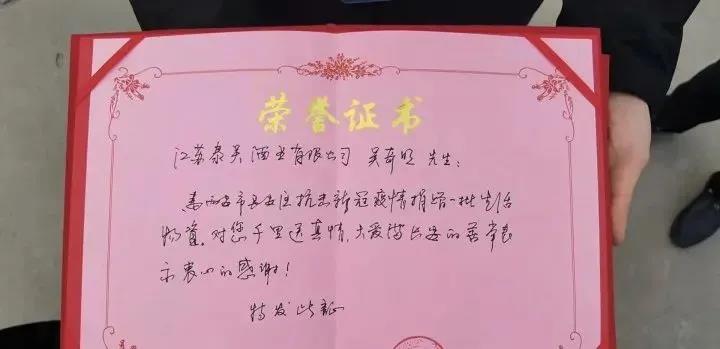 荣誉证书
江苏泉吴酒业有限公司 吴奇 先生:
为西安市长安区抗击新冠疫情捐赠一批生活
物资。对您千里送真情,大爱满长安的善举表
示衷心的感谢!
特发此证